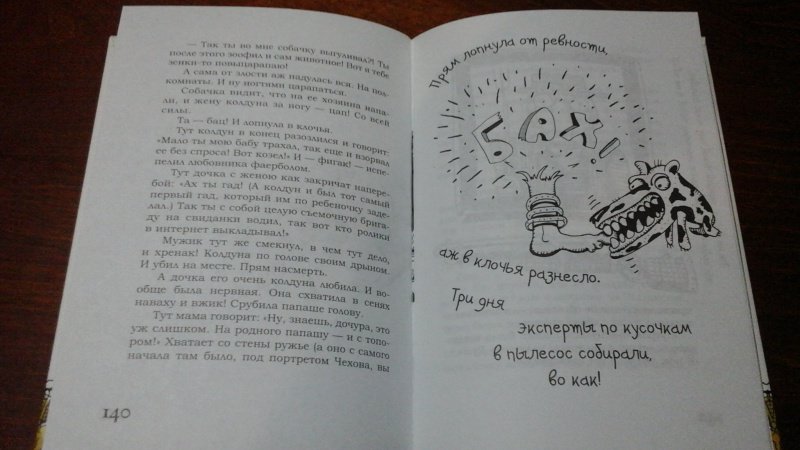 — Так ты во мне собачку выгуливал?! Ты
после этого зоофил и сам животное! Вот я тебе
зенки-то повыцарапаю!
А сама от злости аж надулась вся. На пол-
комнаты. И ну ногтями царапаться.
Собачка видит, что на ее хозяина напа-
ли, и жену колдуна за ногу — цап! Со всей
силы.
Та — бац! И лопнула в клочья.
Тут колдун в конец разозлился и говорит:
«Мало ты мою бабу трахал, так еще и взорвал
ее без спроса! Вот козел!» И — фигак! — испе-
пелил любовника фаерболом.
Тут дочка с женою как закричат напере-
бой: «Ах ты гад! (А колдун и был тот самый
первый гад, который им по ребеночку заде-
лал.) Так ты с собой целую съемочную брига-
ду на свиданки водил, так вот кто ролики
в интернет выкладывал!»
Мужик тут же смекнул, в чем тут дело,
и хренак! Колдуна по голове своим дрыном.
И убил на месте. Прям насмерть.
А дочка его очень колдуна любила. И во-
обще была нервная. Она схватила в сенях
наваху и вжик! Срубила папаше голову.
Тут мама говорит: «Ну, знаешь, дочура, это
уж слишком. На родного папашу — и с топо-
ром!» Хватает со стены ружье (а оно с самого
начала там было, под портретом Чехова, вы
140
Прям лопнула от ревности,
БАХ!
аж в клочья разнесло.
Три дня
эксперты по кусочкам
в пылесос собирали,
во как!